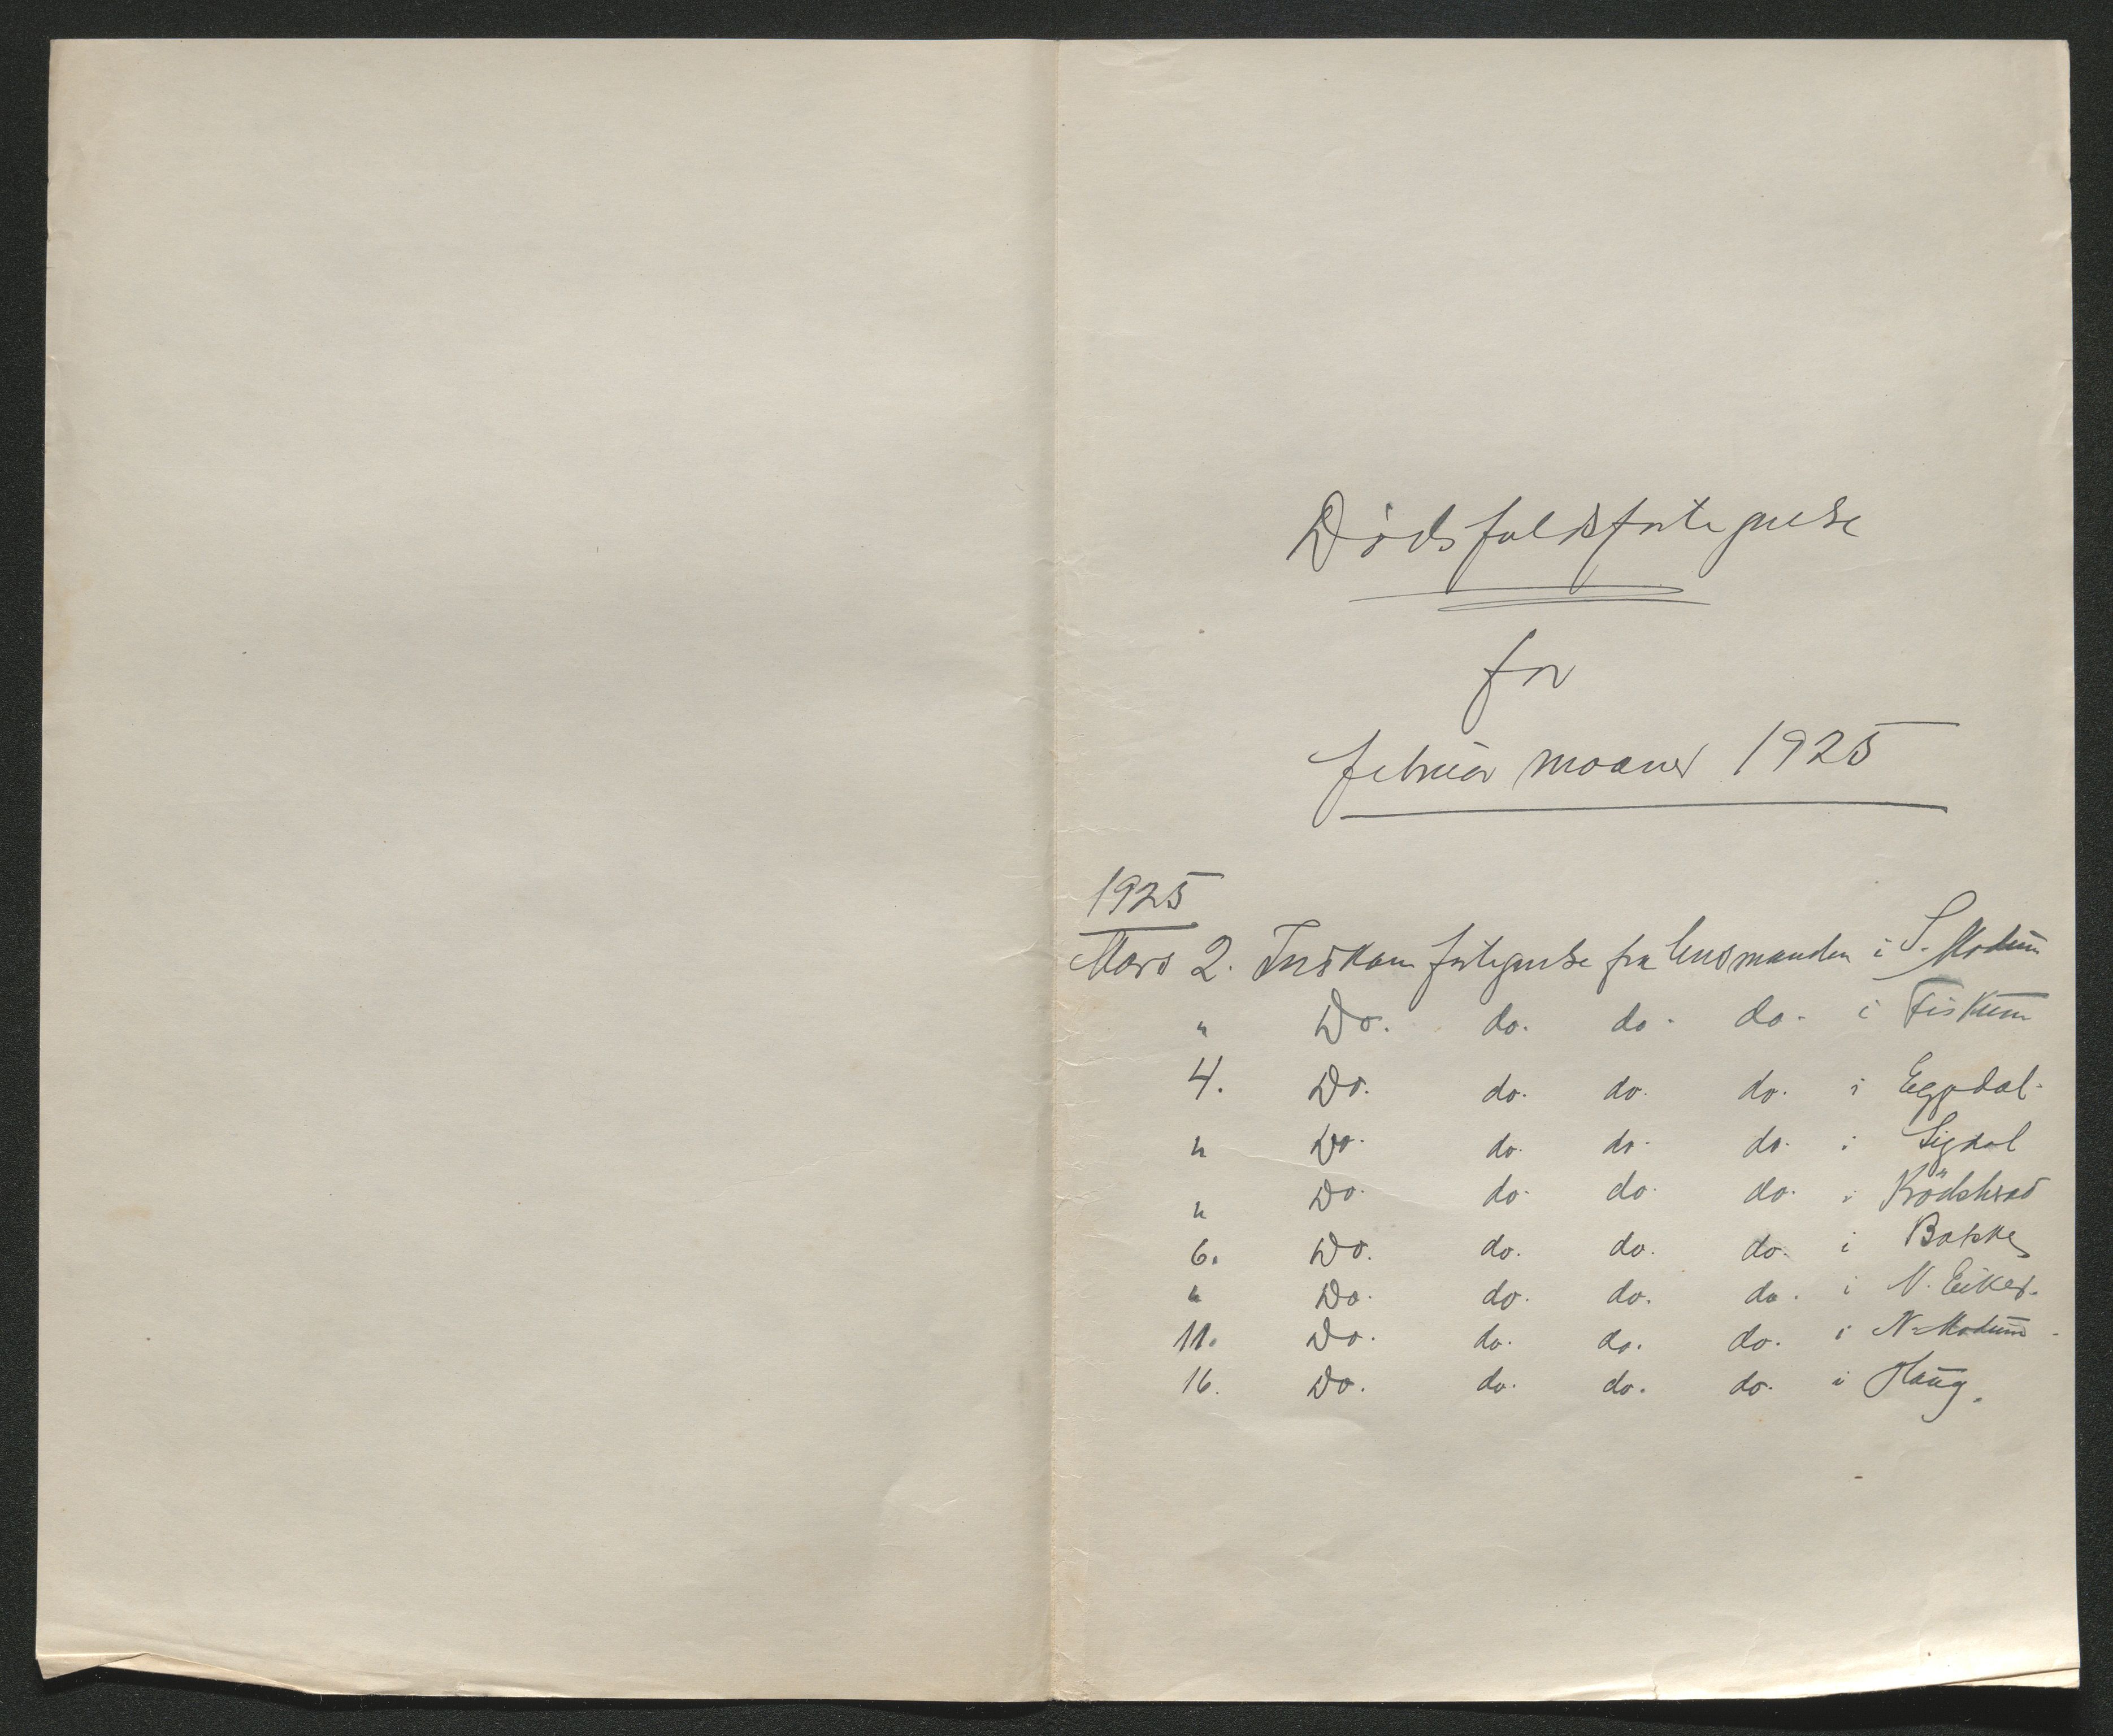 Dødsfaldsfortegnelse
for
februar maaned 1925
1925
Mars 2. Innkom fortegnelse fra lensmanden i S. Modum
" Do. do. do. do. i Fiskum
4. Do. do. do. do. i Eggedal.
" Do. do. do. do. i Sigdal
" Do. do. do. do. i Krödsherad
6. Do. do. do. do. i Bakke
" Do. do. do. do. i N. Eiker.
11. Do. do. do. do. i N. Modum
16. Do. do. do. do. i Haug.